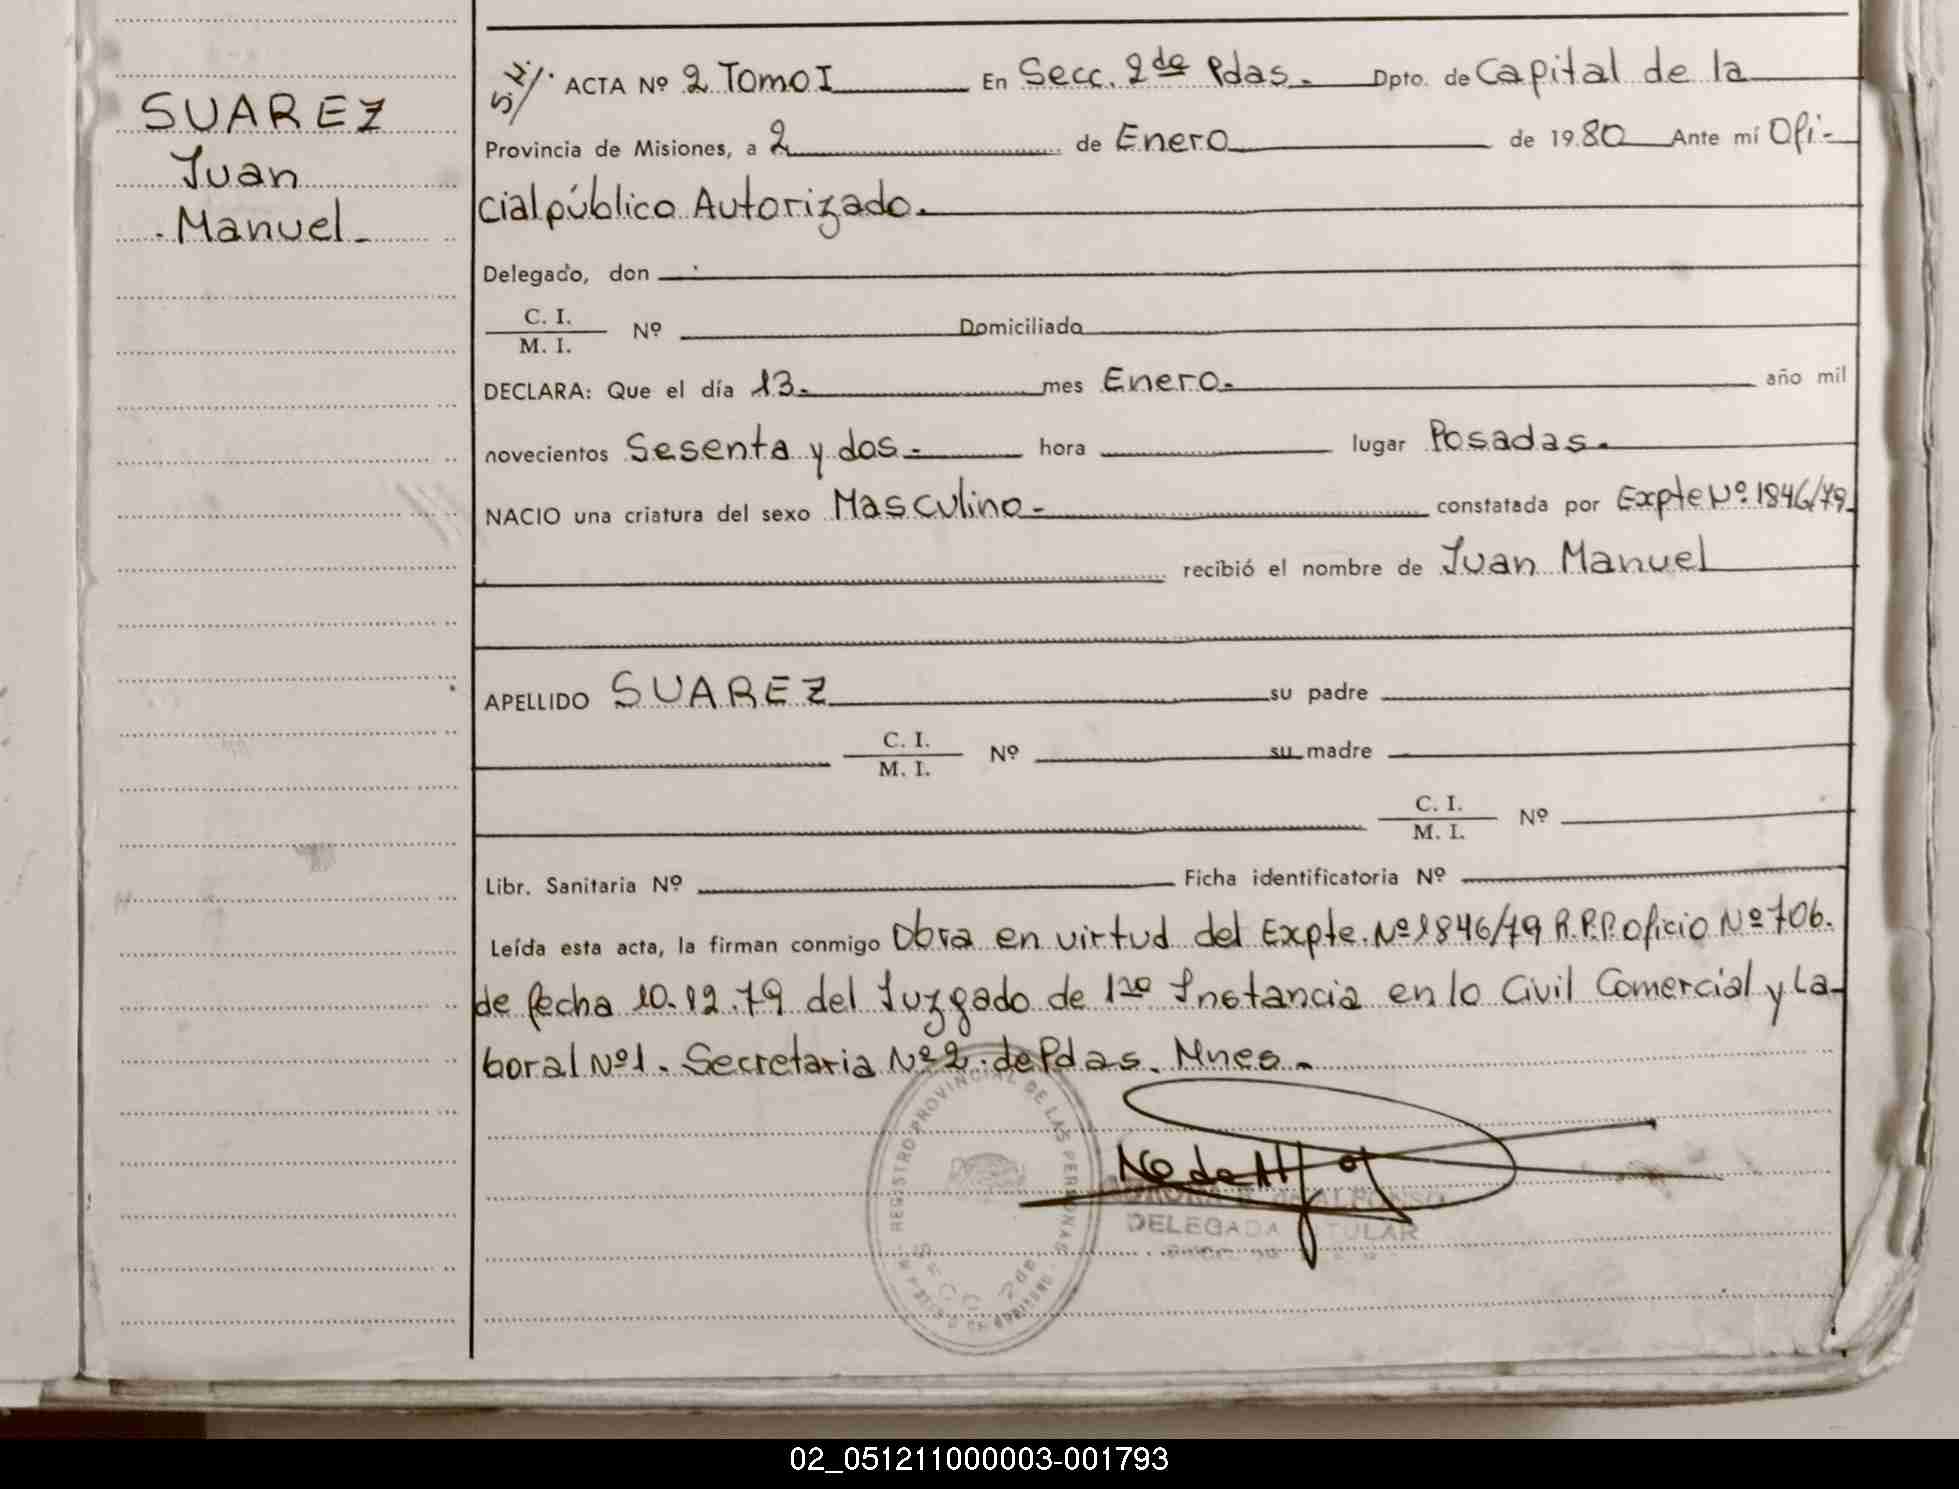 SUAREZ
Juan
Manuel
S.I/. ACTA Nº 2 Tomo I En Secc. 2da Pdas. Dpto. de Capital de la
Provincia de Misiones, a 2 de Enero de 1980 Ante mí Ofi-
cial público Autorizado.
Delegado, don
C. I.
M. I. Nº Domiciliado
DECLARA: Que el día 13. mes Enero. año mil
novecientos Sesenta y dos. hora lugar Posadas.
NACIO una criatura del sexo Masculino constatada por Expte Nº 1846/79
recibió el nombre de Juan Manuel
APELLIDO SUAREZ su padre
C. I.
M. I. Nº su madre
C. I.
M. I. Nº
Libr. Sanitaria Nº Ficha identificatoria Nº
Leída esta acta, la firman conmigo Obra en virtud del Expte. Nº 1846/79 R.P.P. oficio Nº 706.
de fecha 10.12.79 del Juzgado de 1ra Instancia en lo Civil Comercial y La-
boral Nº 1. Secretaria Nº 2. de Pdas. Mnes.
REGISTRO PROVINCIAL DE LAS PERSONAS
SECC 2da
DELEGADA TITULAR
02_051211000003-001793